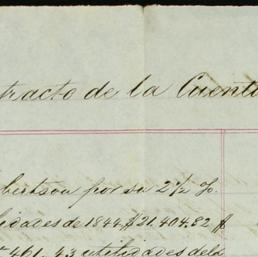 tracto de la Cuenta
bertson por su 2½ %
lidades de 1844 $21.404.82
461.43 utilidades de la